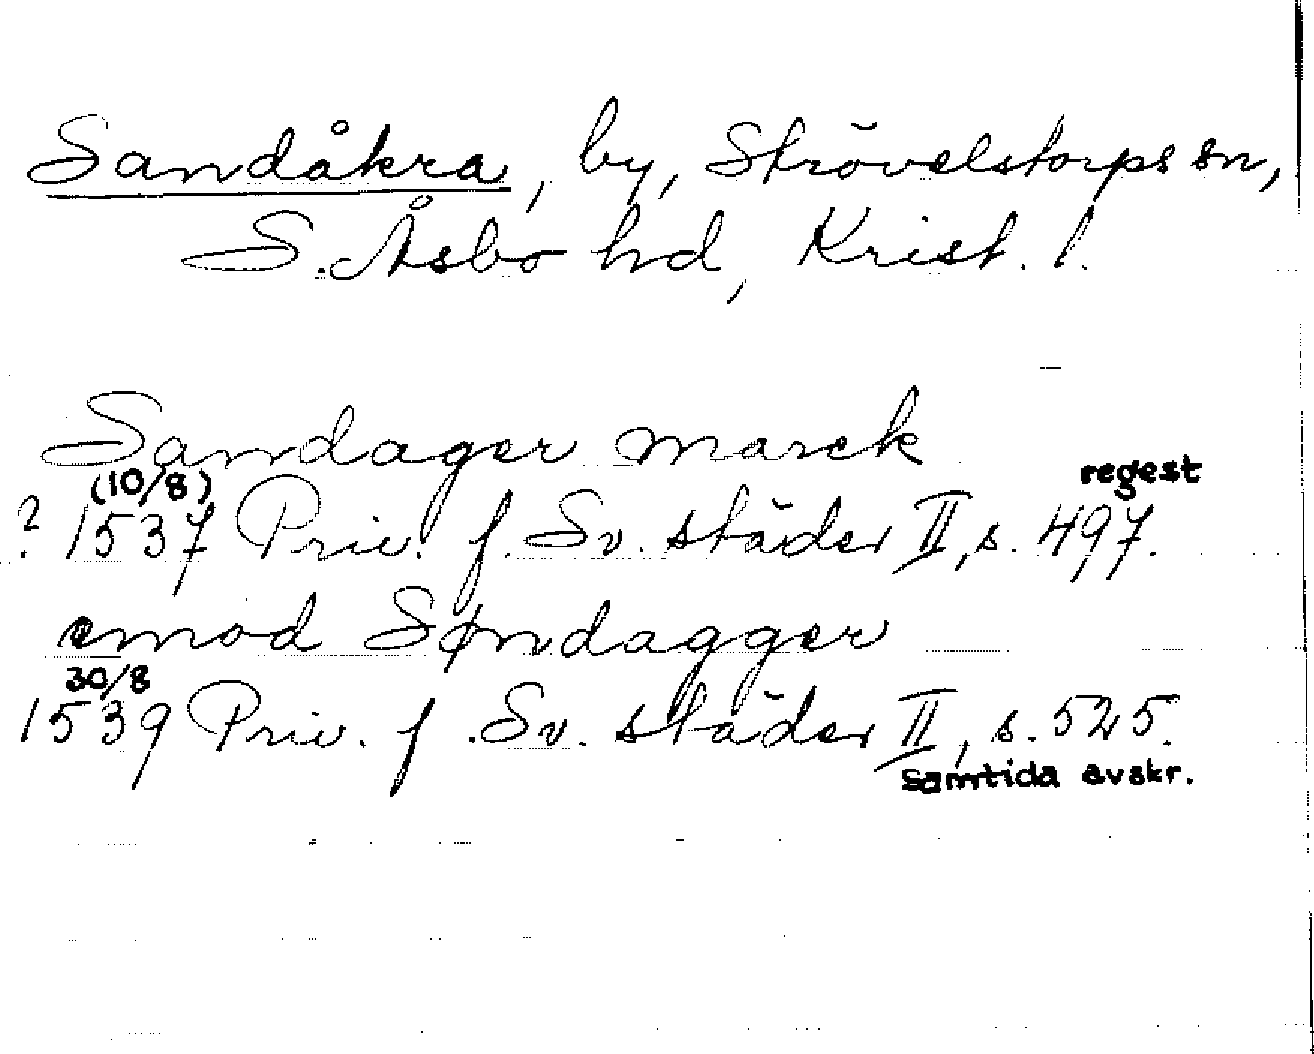 Sandåkra, by, Strövelstorps sn,
S. Åsbo hd, Krist. l.
Sandager marck
(10/8) regest
? 1537 Priv. f. Sv. städer II, s. 497.
emod Søndagger
30/8
1539 Priv. f. Sv. städer II, s. 525.
samtida avskr.